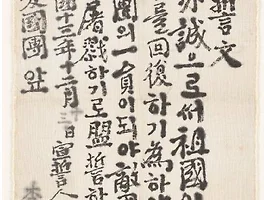 誓文
誠으로써祖國의
를回復하기爲하야
團의一員이되야敵國
屠戮하기로盟誓하
國十三年十二月十三日宣誓人
愛國團앞 李